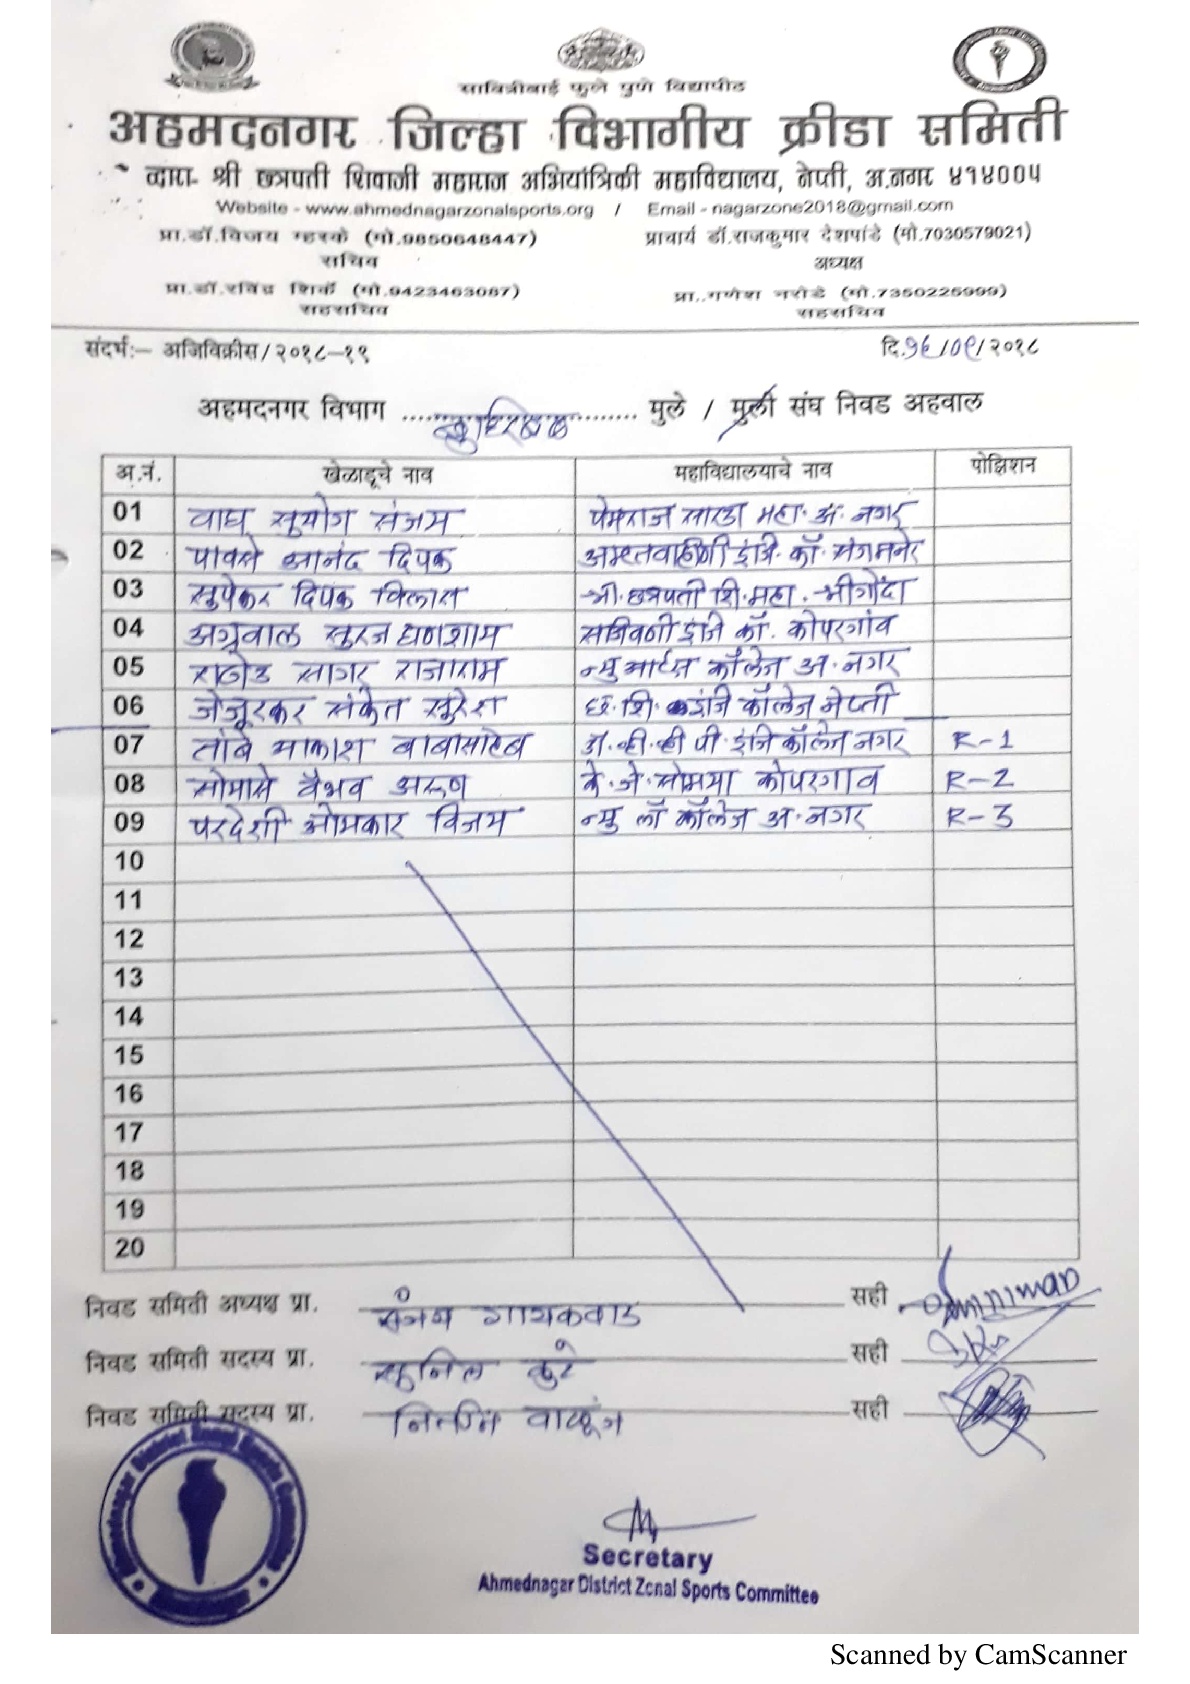 सावित्रीबाई फुले पुणे विद्यापीठ
अहमदनगर जिल्हा विभागीय क्रीडा समिती
द्वारा- श्री छत्रपती शिवाजी महाराज अभियांत्रिकी महाविद्यालय, नेप्ती, अ.नगर ४१४००५
Website - www.ahmednagarzonalsports.org / Email - nagarzone2018@gmail.com
प्रा.डॉ.विजय म्हस्के (मो.9850648447) प्राचार्य डॉ.राजकुमार देशपांडे (मो.7030579021)
सचिव अध्यक्ष
प्रा.डॉ.रविंद्र शिर्के (मो.9423463087) प्रा..गणेश नरोडे (मो.7350225999)
सहसचिव सहसचिव
संदर्भ:– अजिविक्रीस/२०१८–१९ दि.१८/०९/२०१८
अहमदनगर विभाग ........ मुले / मुली संघ निवड अहवाल
अ.नं. खेळाडूचे नाव महाविद्यालयाचे नाव पोझिशन
01 वाघ सुयोग संजय पेमराज सारडा महा. अ. नगर
02 पावसे आनंद दिपक अमृतवाहीणी इंजि. कॉ. संगमनेर
03 सुपेकर दिपक विलास श्री. छत्रपती शि. महा. श्रीगोंदा
04 अग्रवाल सुरज घणशाम संजिवणी इंजि कॉ. कोपरगांव
05 राठोड सागर राजाराम न्यु आर्टस कॉलेज अ. नगर
06 जेजूरकर संकेत सुरेश छ. शि. इंजि कॉलेज नेप्ती
07 तांबे आकाश बाबासाहेब अ. व्ही. व्ही पी. इंजि कॉलेज नगर R-1
08 सोमासे वैभव अरुण के. जे. सोमय्या कोपरगाव R-2
09 परदेशी ओमकार विजय न्यु लॉ कॉलेज अ. नगर R-3
10
11
12
13
14
15
16
17
18
19
20
निवड समिती अध्यक्ष प्रा. संजय गायकवाड सही
निवड समिती सदस्य प्रा. सुनिल कुटे सही
निवड समिती सदस्य प्रा. नितीन वाळूंज सही
Ahmednagar District Zonal Sports Committee
Secretary
Ahmednagar District Zonal Sports Committee
Scanned by CamScanner